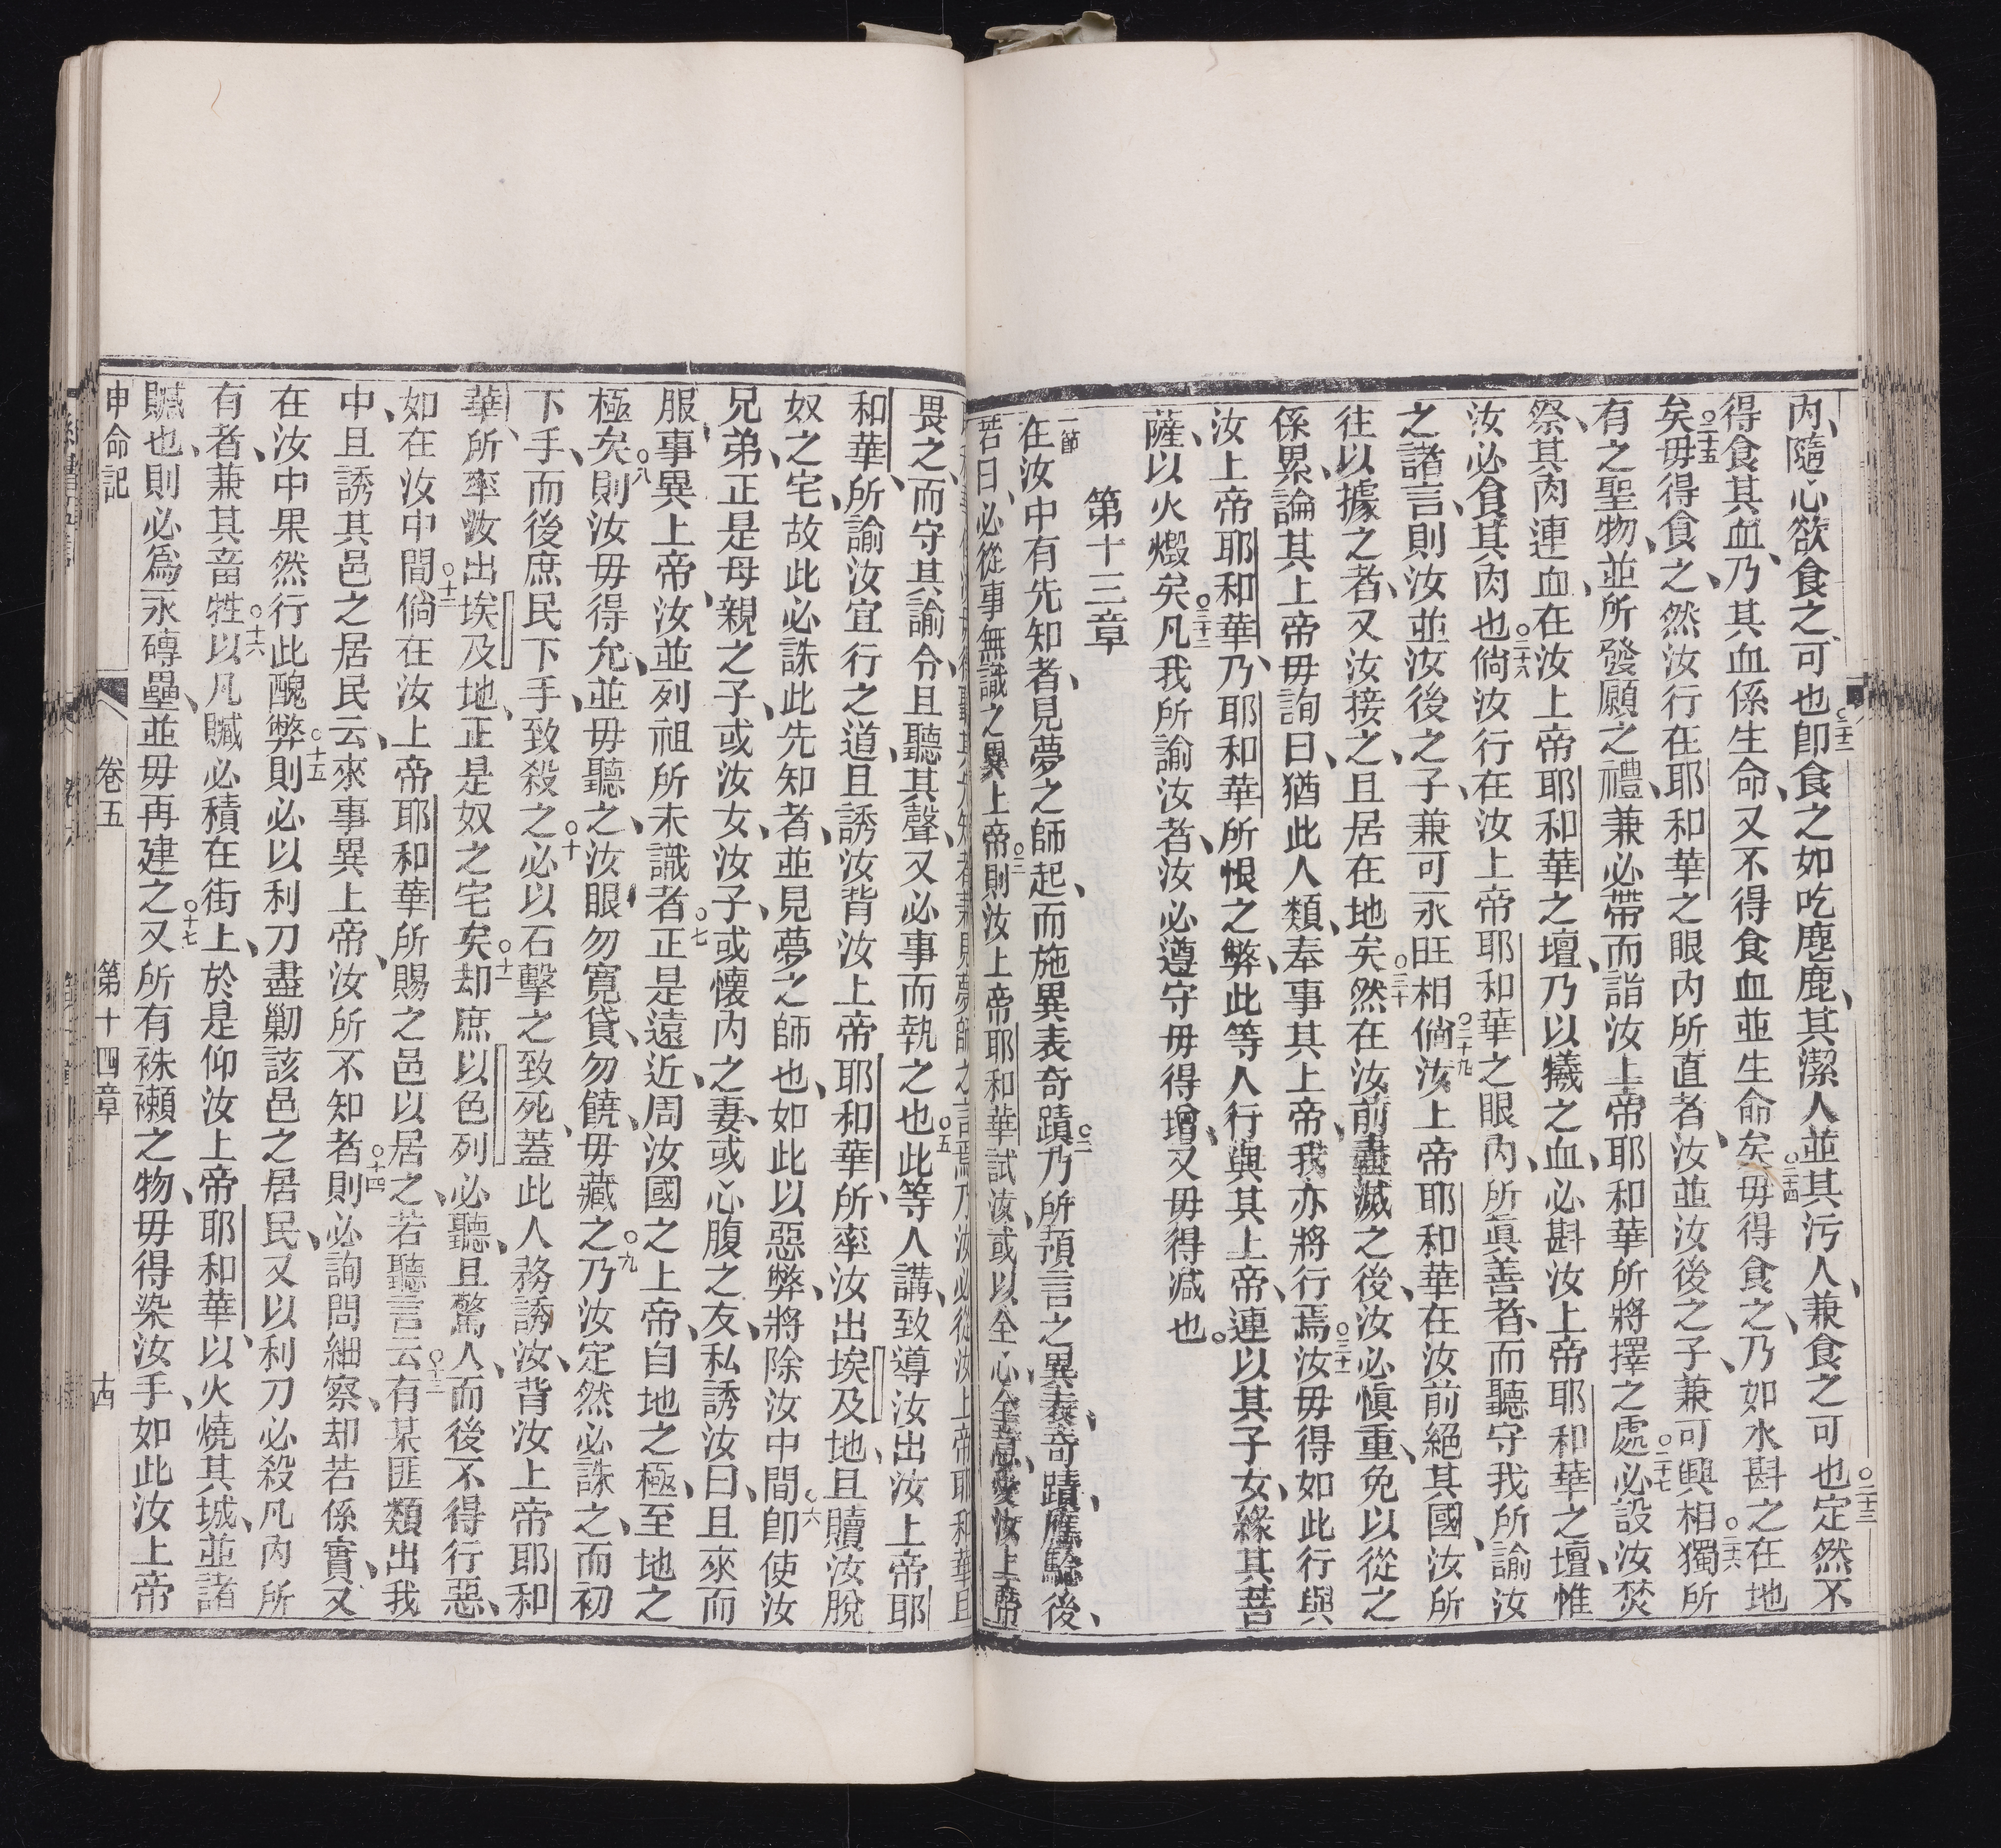 內、隨心欲食之、可也○二十二卽食之如吃麀鹿、其潔人並其污人、兼食之可也○二十三定然不
得食其血、乃其血係生命、又不得食血並生命矣○二十四毋得食之、乃如水斟之在地
矣○二十五毋得食之、然汝行在耶和華之眼內所直者、汝並汝後之子、兼可興相○二十六獨所
有之聖物、並所發願之禮、兼必帶而詣汝上帝耶和華所將擇之處○二十七必設汝焚
祭、其肉連血、在汝上帝耶和華之壇、乃以犧之血、必斟汝上帝耶和華之壇、惟
汝必食其肉也○二十八倘汝行在汝上帝耶和華之眼內、所眞善者、而聽守我所諭汝
之諸言、則汝並汝後之子、兼可永旺相○二十九倘汝上帝耶和華在汝前絕其國、汝所
往以據之者、又汝接之、且居在地矣○三十然在汝前盡滅之後、汝必愼重、免以從之
係累、論其上帝毋詢曰、猶此人類、奉事其上帝、我亦將行焉○三十一汝毋得如此行與
汝上帝耶和華、乃耶和華所恨之弊、此等人行與其上帝、連以其子女、緣其菩
薩、以火燬矣○三十二凡我所諭汝者、汝必遵守毋得增、又毋得減也。
第十三章
一節在汝中有先知者、見夢之師起、而施異表奇蹟○二乃所預言之異表、奇蹟、應驗後、
若曰、必從事無識之異上帝○三則汝上帝耶和華試汝、或以全心全意、愛汝上帝
畏之、而守其諭令、且聽其聲、又必事而執之也○五此等人講、致導汝出汝上帝耶
和華、所諭汝宜行之道、且誘汝背汝上帝耶和華、所率汝出埃及地、且贖汝脫
奴之宅、故此必誅此先知者、並見夢之師也、如此以惡弊、將除汝中間○六卽使汝
兄弟、正是母親之子、或汝女、汝子、或懷內之妻、或心腹之友、私誘汝曰、且來而
服事異上帝、汝並列祖所未識者○七正是遠近、周汝國之上帝、自地之極、至地之
極矣○八則汝毋得允、並毋聽之、汝眼勿寬貸、勿饒、毋藏之○九乃汝定然必誅之、而初
下手、而後庶民下手、致殺之○十必以石擊之致死、蓋此人務誘汝、背汝上帝耶和
華、所率汝出埃及地、正是奴之宅矣○十一却庶以色列必聽、且驚人、而後不得行惡、
如在汝中間○十二倘在汝上帝耶和華所賜之邑以居之、若聽言云○十三有某匪類出我
中、且誘其邑之居民云、來事異上帝、汝所不知者○十四則必詢問細察、却若係實、又
在汝中果然行此醜弊○十五則必以利刀盡勦該邑之居民、又以利刀必殺凡內所
有者、兼其畜牲○十六以凡贓必積在街上、於是仰汝上帝耶和華、以火燒其城、並諸
贓也、則必爲永磚壘、並毋再建之○十七又所有袾襰之物、毋得染汝手、如此汝上帝
申命記 卷五 第十四章 十四